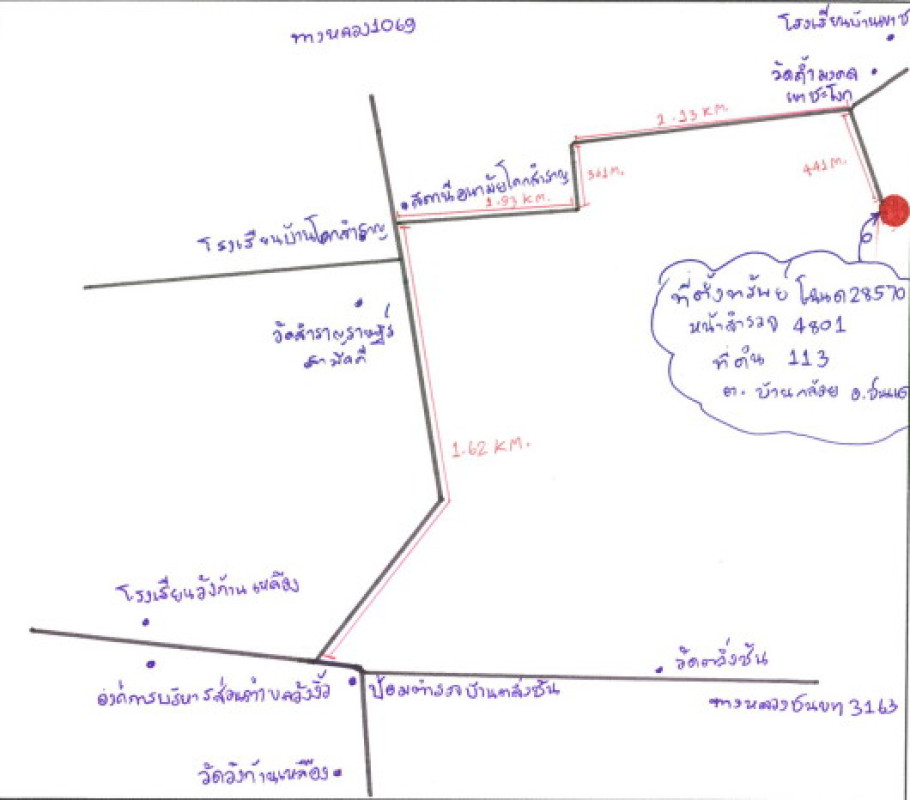 ทางหลวง1069
โรงเรียนบ้านเขาช
วัดถ้ำมงคล
เขาชะโงก
2.23 KM.
361 M.
441 M.
สถานีอนามัยโคกสำราญ
1.93 KM.
โรงเรียนบ้านโคกสำราญ
วัดสำราญราษฎร์
สามัคคี
ที่ตั้งทรัพย์ โฉนด 28570
หน้าสำรวจ 4801
ที่ดิน 113
ต. บ้านกล้วย อ.ชนแด
1.62 KM.
โรงเรียนวังก้านเหลือง
องค์การบริหารส่วนตำบลวังงิ้ว
ป้อมตำรวจบ้านตลิ่งชัน
วัดตลิ่งชัน
ทางหลวงชนบท 3163
วัดวังก้านเหลือง